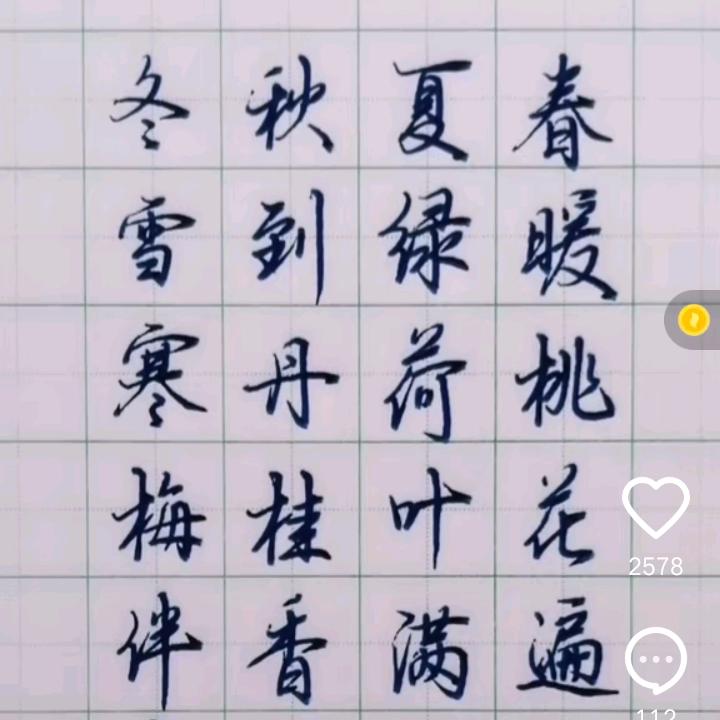 春暖桃花遍
夏绿荷叶满
秋到丹桂香
冬雪寒梅伴
2578